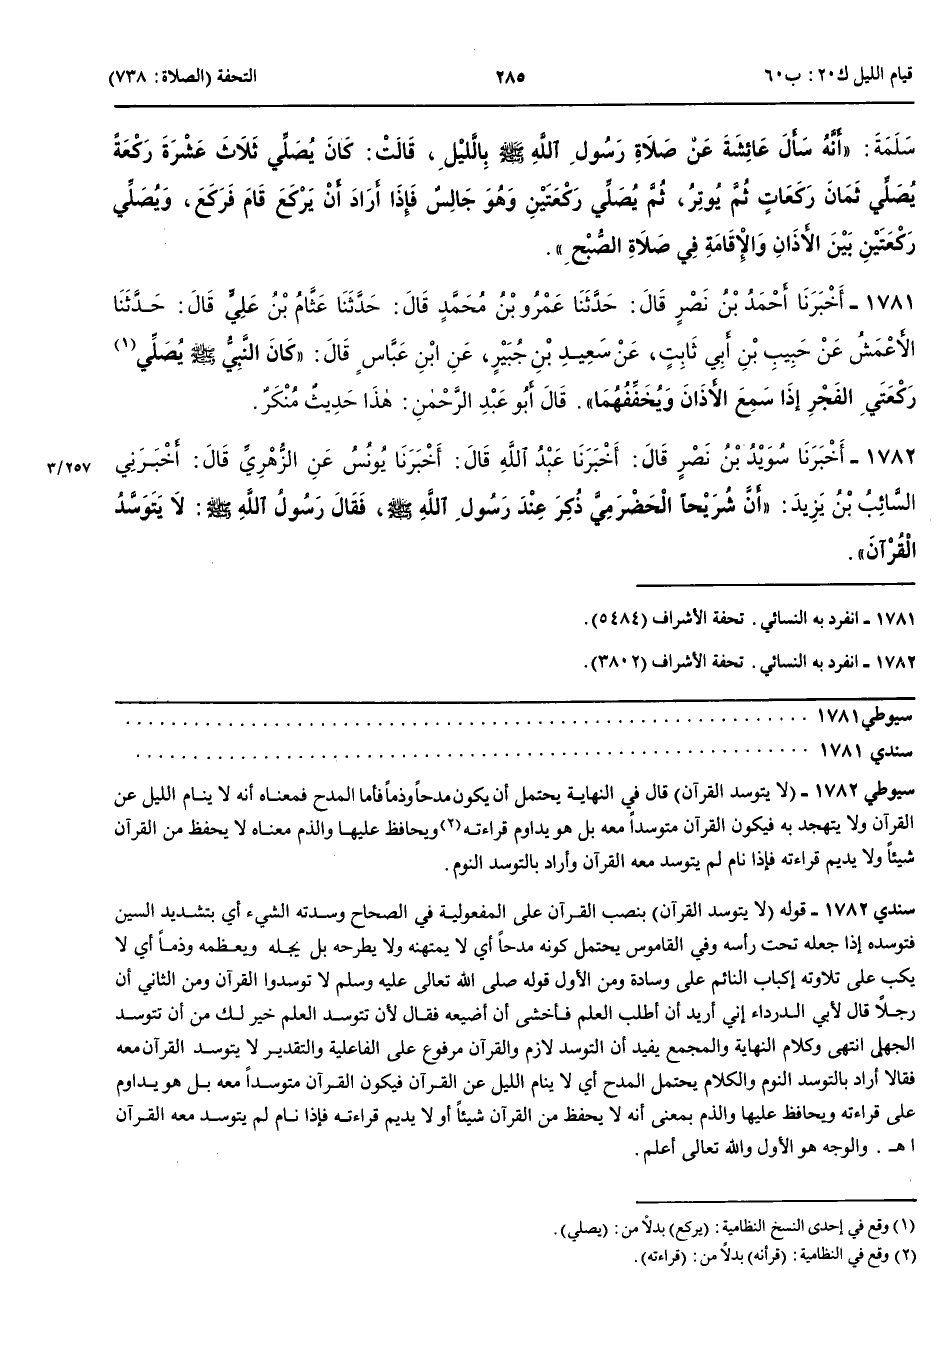 قيام الليل ك٢٠: ب٦٠ ٢٨٥ التحفة (الصلاة: ٧٣٨)
سَلَمَةَ: «أَنَّهُ سَأَلَ عَائِشَةَ عَنْ صَلَاةِ رَسُولِ ٱللَّهِ ﷺ بِاللَّيْلِ، قَالَتْ: كَانَ يُصَلِّي ثَلَاثَ عَشْرَةَ رَكْعَةً
يُصَلِّي ثَمَانَ رَكَعَاتٍ ثُمَّ يُوتِرُ، ثُمَّ يُصَلِّي رَكْعَتَيْنِ وَهُوَ جَالِسٌ فَإِذَا أَرَادَ أَنْ يَرْكَعَ قَامَ فَرَكَعَ، وَيُصَلِّي
رَكْعَتَيْنِ بَيْنَ الْأَذَانِ وَالْإِقَامَةِ فِي صَلَاةِ الصُّبْحِ».
١٧٨١ ـ أَخْبَرَنَا أَحْمَدُ بْنُ نَصْرٍ قَالَ: حَدَّثَنَا عَمْرُو بْنُ مُحَمَّدٍ قَالَ: حَدَّثَنَا عَثَّامُ بْنُ عَلِيٍّ قَالَ: حَدَّثَنَا
الْأَعْمَشُ عَنْ حَبِيبِ بْنِ أَبِي ثَابِتٍ، عَنْ سَعِيدِ بْنِ جُبَيْرٍ، عَنِ ابْنِ عَبَّاسٍ قَالَ: «كَانَ النَّبِيُّ ﷺ يُصَلِّي(١)
رَكْعَتَيِ الْفَجْرِ إِذَا سَمِعَ الْأَذَانَ وَيُخَفِّفُهُمَا». قَالَ أَبُو عَبْدِ الرَّحْمٰنِ: هٰذَا حَدِيثٌ مُنْكَرٌ.
١٧٨٢ ـ أَخْبَرَنَا سُوَيْدُ بْنُ نَصْرٍ قَالَ: أَخْبَرَنَا عَبْدُ اللَّهِ قَالَ: أَخْبَرَنَا يُونُسُ عَنِ الزُّهْرِيِّ قَالَ: أَخْبَرَنِي ٣/٢٥٧
السَّائِبُ بْنُ يَزِيدَ: «أَنَّ شُرَيْحاً الْحَضْرَمِيَّ ذُكِرَ عِنْدَ رَسُولِ ٱللَّهِ ﷺ، فَقَالَ رَسُولُ اللَّهِ ﷺ: لَا يَتَوَسَّدُ
الْقُرْآنَ».
١٧٨١ ـ انفرد به النسائي. تحفة الأشراف (٥٤٨٤).
١٧٨٢ ـ انفرد به النسائي. تحفة الأشراف (٣٨٠٢).
سيوطي ١٧٨١ ..........................................................
سندي ١٧٨١ ..........................................................
سيوطي ١٧٨٢ ـ (لا يتوسد القرآن) قال في النهاية يحتمل أن يكون مدحاً وذماً فأما المدح فمعناه أنه لا ينام الليل عن
القرآن ولا يتهجد به فيكون القرآن متوسداً معه بل هو يداوم قراءته(٢) ويحافظ عليها والذم معناه لا يحفظ من القرآن
شيئاً ولا يديم قراءته فإذا نام لم يتوسد معه القرآن وأراد بالتوسد النوم.
سندي ١٧٨٢ ـ قوله (لا يتوسد القرآن) بنصب القرآن على المفعولية في الصحاح وسدته الشيء أي بتشديد السين
فتوسده إذا جعله تحت رأسه وفي القاموس يحتمل كونه مدحاً أي لا يمتهنه ولا يطرحه بل يجله ويعظمه وذماً أي لا
يكب على تلاوته إكباب النائم على وسادة ومن الأول قوله صلى الله تعالى عليه وسلم لا توسدوا القرآن ومن الثاني أن
رجلاً قال لأبي الدرداء إني أريد أن أطلب العلم فأخشى أن أضيعه فقال لأن تتوسد العلم خير لك من أن تتوسد
الجهل انتهى وكلام النهاية والمجمع يفيد أن التوسد لازم والقرآن مرفوع على الفاعلية والتقدير لا يتوسد القرآن معه
فقالا أراد بالتوسد النوم والكلام يحتمل المدح أي لا ينام الليل عن القرآن فيكون القرآن متوسداً معه بل هو يداوم
على قراءته ويحافظ عليها والذم بمعنى أنه لا يحفظ من القرآن شيئاً أو لا يديم قراءته فإذا نام لم يتوسد معه القرآن
ا هـ. والوجه هو الأول والله تعالى أعلم.
(١) وقع في إحدى النسخ النظامية: (يركع) بدلاً من: (يصلي).
(٢) وقع في النظامية: (قرأنه) بدلاً من: (قراءته).